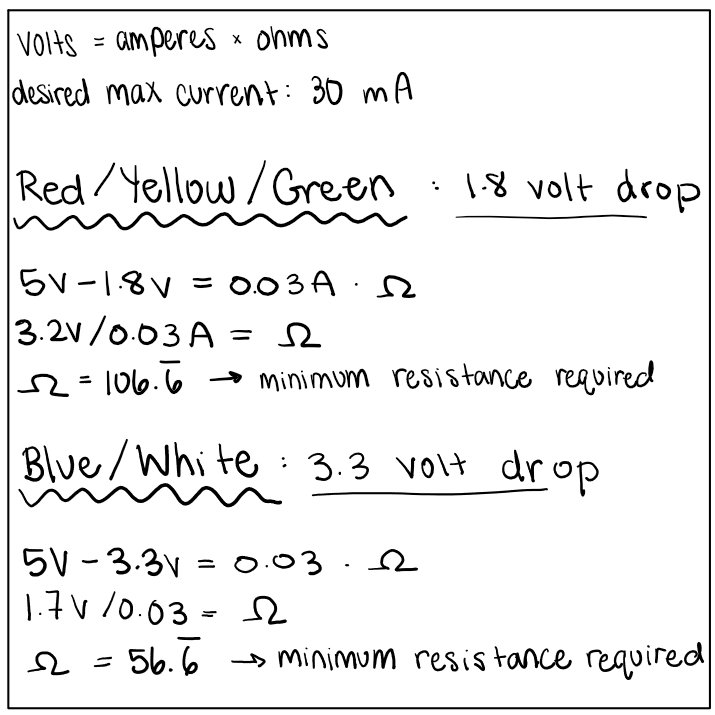 volts = amperes × ohms
desired max current: 30 mA
Red/Yellow/Green : 1.8 volt drop
5V - 1.8V = 0.03A · Ω
3.2V/0.03A = Ω
Ω = 106.6̅ → minimum resistance required
Blue/White : 3.3 volt drop
5V - 3.3V = 0.03 · Ω
1.7V/0.03 = Ω
Ω = 56.6̅ → minimum resistance required